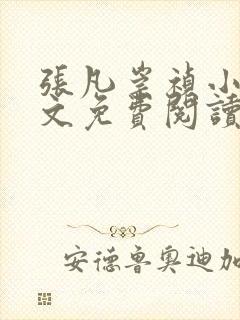 張凡崇禎小
文免費閱讀
安德魯奧迪加